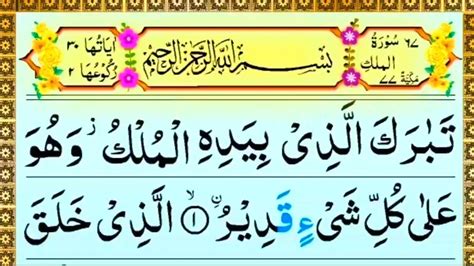 ٦٧ سُوْرَةُ
الملك
مَكِّيَّةٌ ٧٧
بِسْمِ اللّٰهِ الرَّحْمٰنِ الرَّحِيْمِ
اٰيَاتُهَا ٣٠
رُكُوْعُهَا ٢
تَبٰرَكَ الَّذِىْ بِيَدِهِ الْمُلْكُ ز وَهُوَ
عَلٰى كُلِّ شَىْءٍ قَدِيْرُ ۨ ۙ ١ الَّذِىْ خَلَقَ